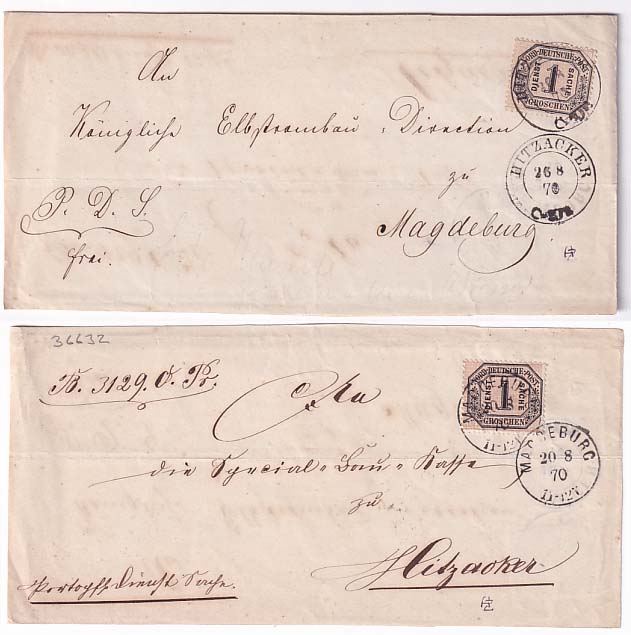 An
Königliche Elbstrombau-Direction
zu
Magdeburg.
P. D. S.
frei.
NORD-DEUTSCHE-POST
DIENST 1 SACHE
GROSCHEN
HITZACKER
26 8
70
36632
B. 3129. O. Pr.
An
die Special-Bau-Kasse
zu
Hitzacker.
Portopfl. Dienst Sache.
NORD-DEUTSCHE-POST
DIENST 1 SACHE
GROSCHEN
MAGDEBURG
20 8
70
11-12V